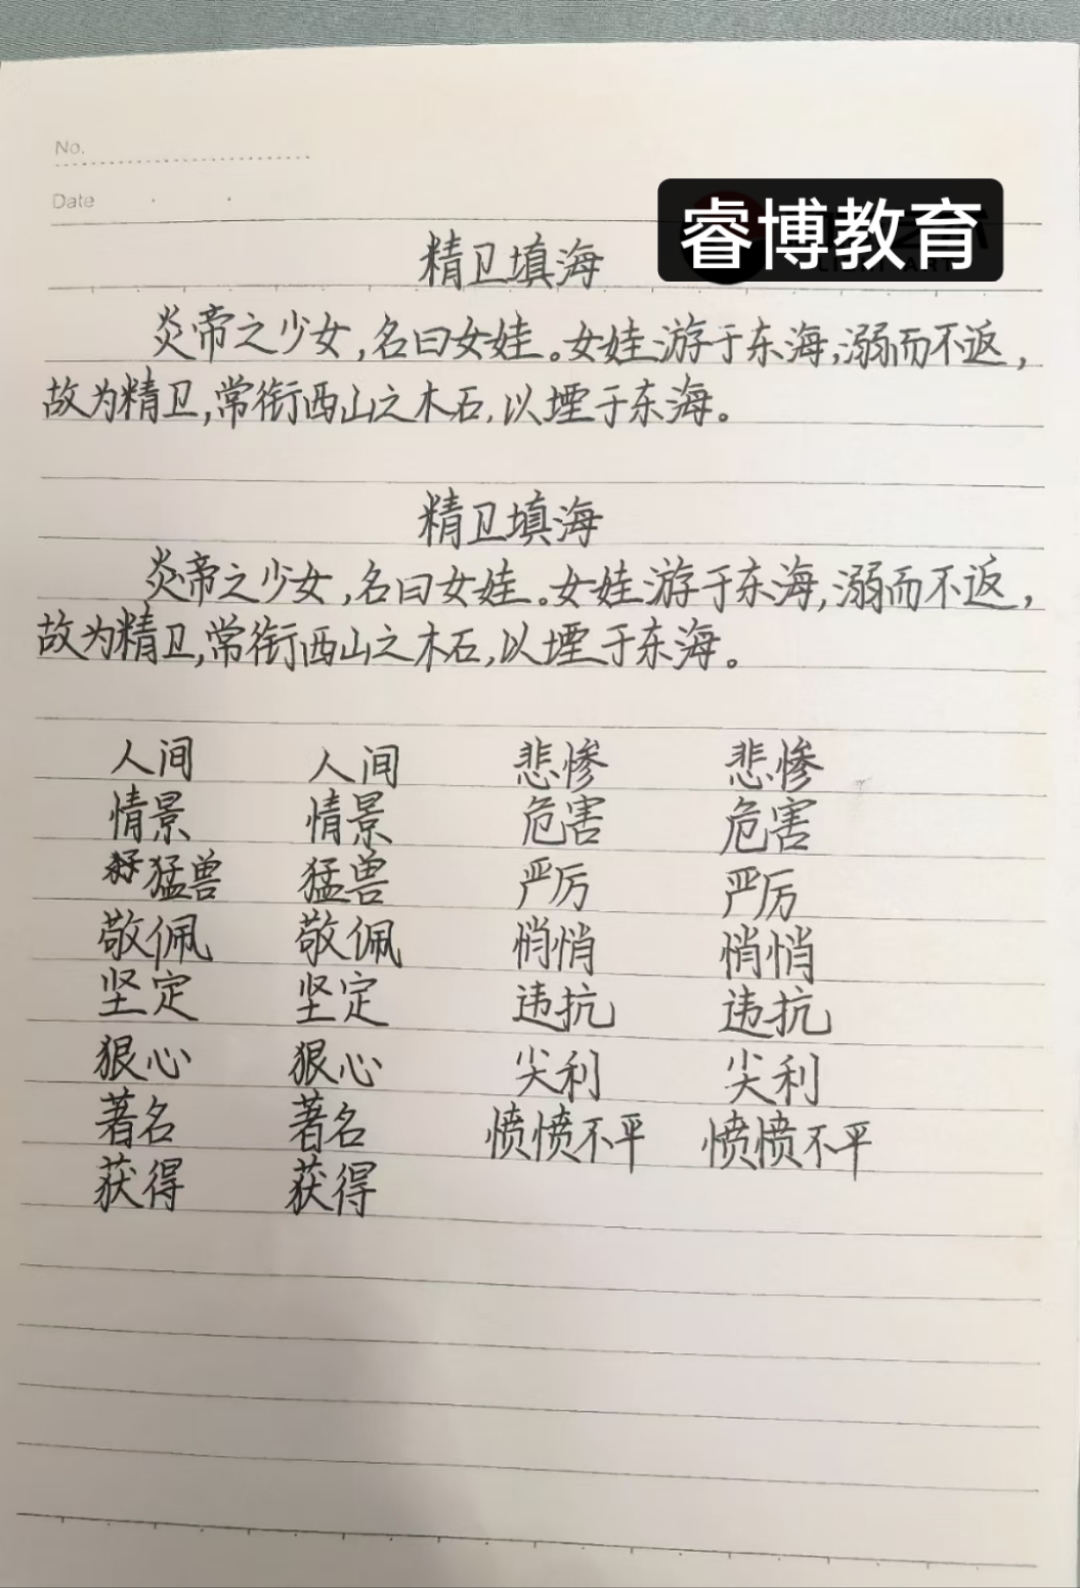 No.
Date
睿博教育
精卫填海
炎帝之少女,名曰女娃。女娃游于东海,溺而不返,
故为精卫,常衔西山之木石,以堙于东海。
精卫填海
炎帝之少女,名曰女娃。女娃游于东海,溺而不返,
故为精卫,常衔西山之木石,以堙于东海。
人间 人间 悲惨 悲惨
情景 情景 危害 危害
猛兽 猛兽 严厉 严厉
敬佩 敬佩 悄悄 悄悄
坚定 坚定 违抗 违抗
狠心 狠心 尖利 尖利
著名 著名 愤愤不平 愤愤不平
获得 获得